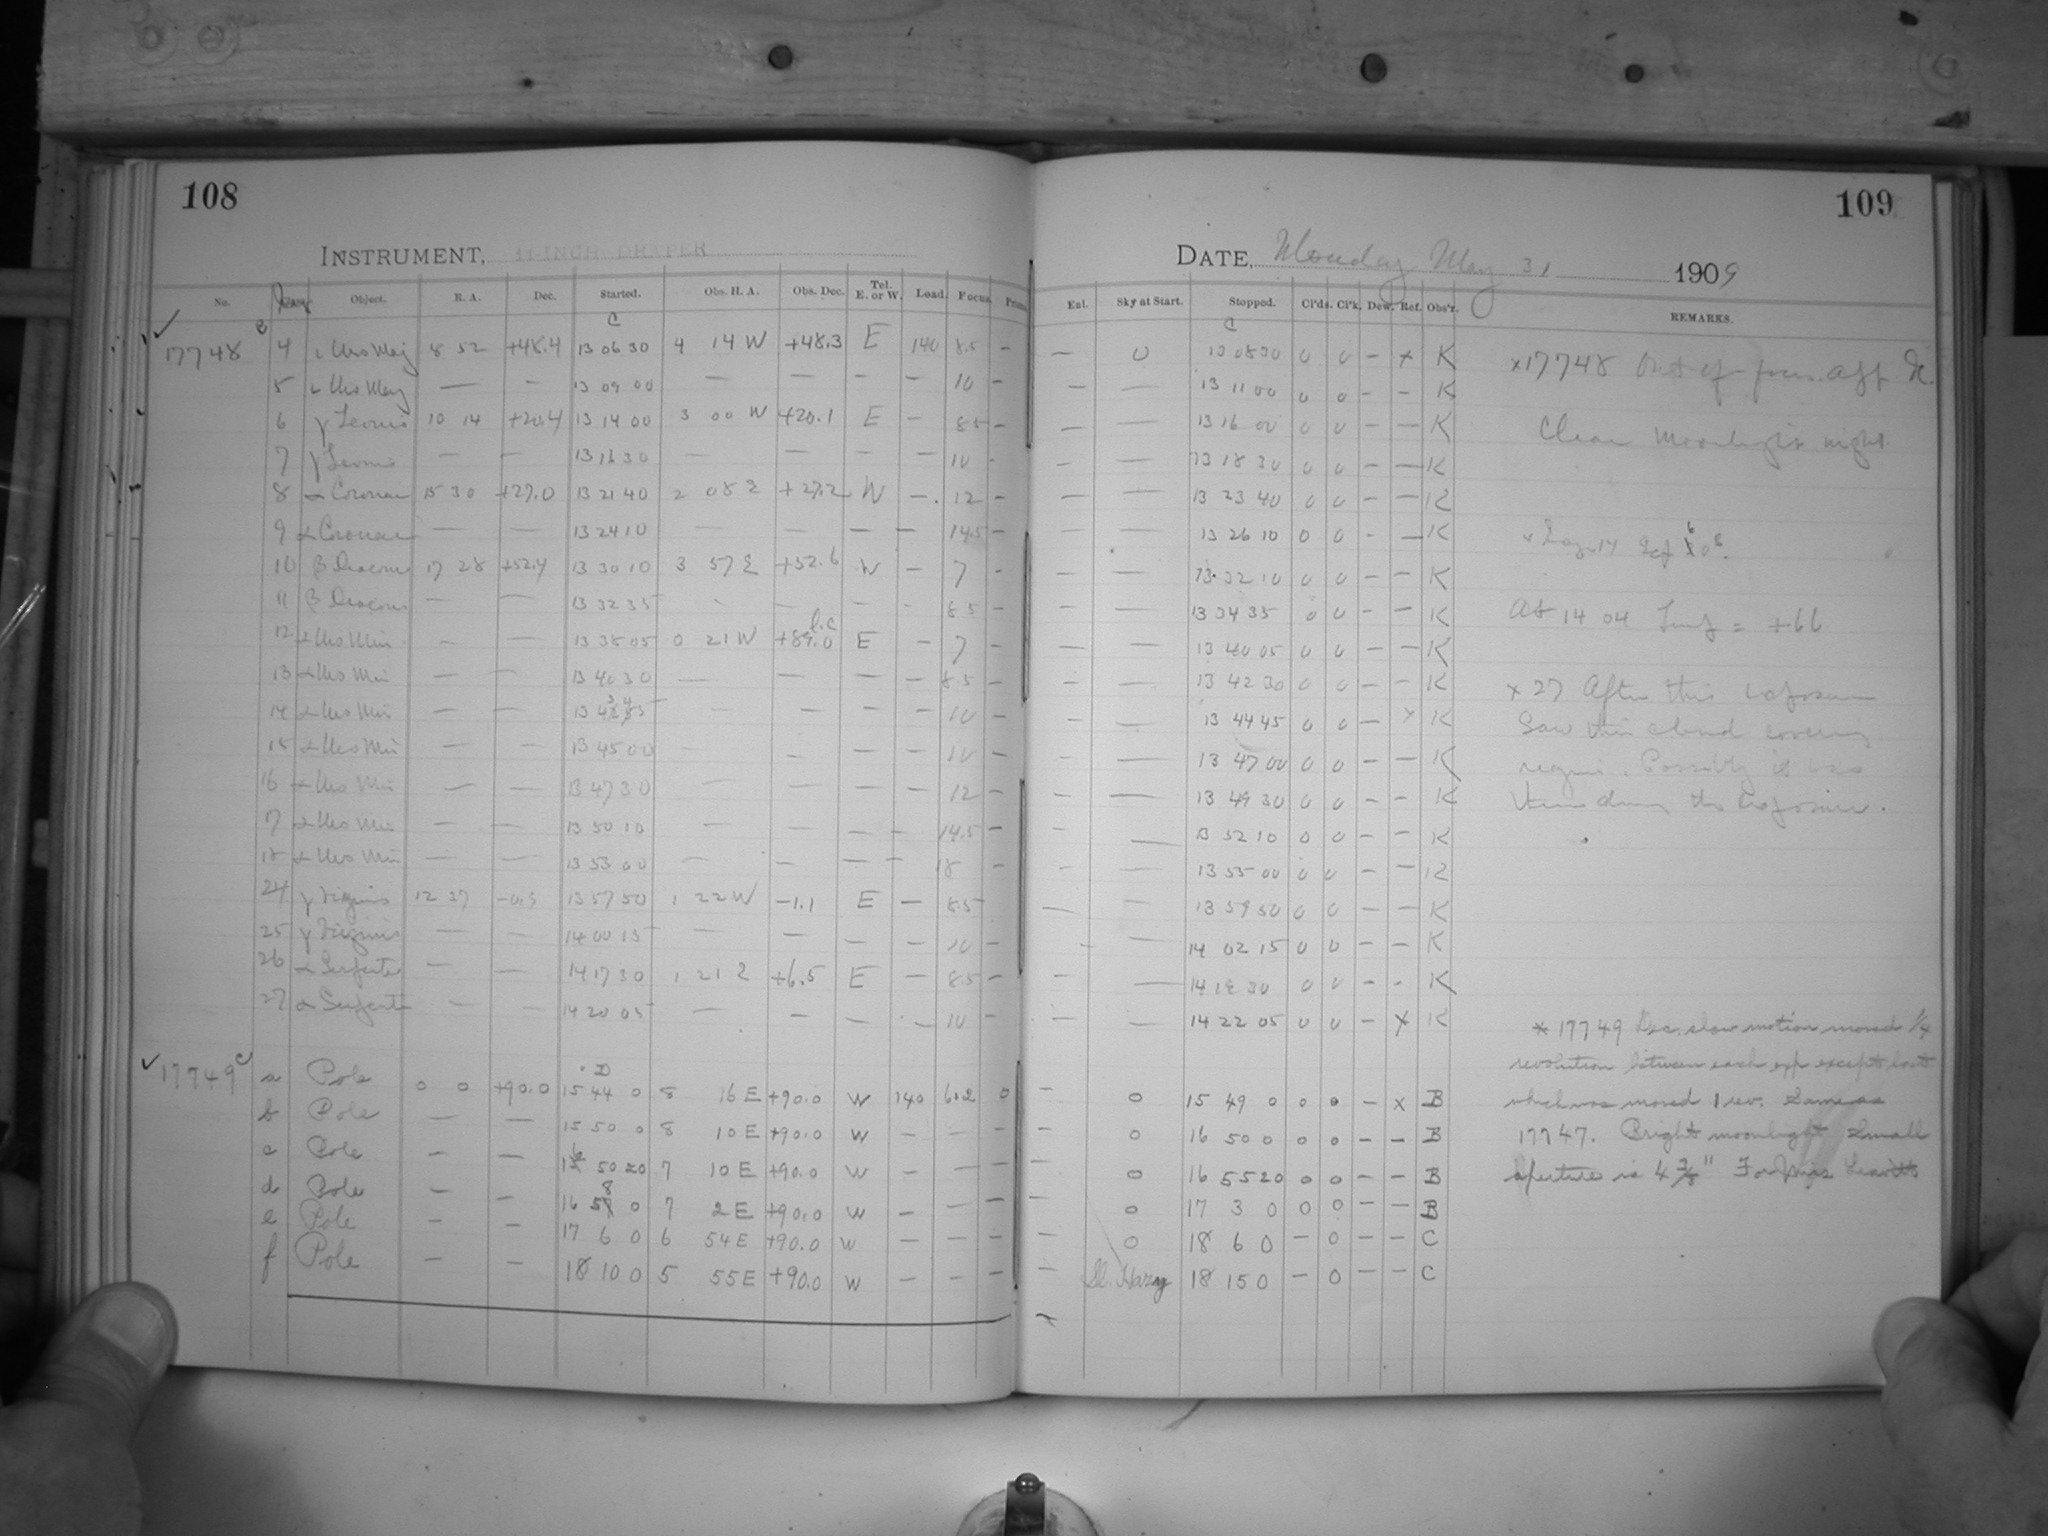 108
INSTRUMENT, 11-INCH DRAPER
No. Object. R. A. Dec. Started. Obs. H. A. Obs. Dec. Tel. E. or W. Load. Focus.
C
17748 4 ι Urs Maj 8 52 +48.4 13 06 30 4 14 W +48.3 E 140 8.5 –
5 ι Urs Maj — – 13 09 00 — – – – 10 –
6 γ Leonis 10 14 +20.4 13 14 00 3 00 W +20.1 E – 8.5 –
7 γ Leonis — — 13 16 30 — – – – 10 -
8 α Coronae 15 30 +27.0 13 21 40 2 08 E +27.2 W – 12 –
9 α Coronae — — 13 24 10 — — — — 14.5 –
10 β Draconis 17 28 +52.4 13 30 10 3 57 E +52.6 W – 7 –
11 β Draconis — — 13 32 35 - — – - 8.5 –
l.c
12 α Urs Min – — 13 38 05 0 21 W +89.0 E – 7 –
13 α Urs Min — — 13 40 30 — – – – 8.5 –
14 α Urs Min — — – – – – 10 –
15 α Urs Min — — 13 45 00 — – – – 10 –
16 α Urs Min — — 13 47 30 — — – – 12 –
17 α Urs Min — — 13 50 10 — – – – 14.5 –
18 α Urs Min — — 13 53 00 — – — – 18 –
24 γ Virginis 12 27 -0.9 13 57 50 1 22 W -1.1 E – 8.5
25 γ Virginis — — 14 00 15 — – – – 10 –
26 α Serpentis — — 14 17 30 1 21 E +6.5 E – 8.5 –
27 α Serpentis – — 14 20 05 — – – – 10 –
D
17749 a Pole 0 0 +90.0 15 44 0 8 16 E +90.0 W 140 60.2 0
b Pole — — 15 50 0 8 10 E +90.0 W – – –
c Pole – — 16 50 20 7 10 E +90.0 W – – –
d Pole – – 16 58 0 7 2 E +90.0 W – – –
e Pole – – 17 6 0 6 54 E +90.0 W – – –
f Pole – – 18 10 0 5 55 E +90.0 W – – –
109
DATE, Monday May 31, 1909
Ent. Sky at Start. Stopped. Cl'ds. Cl'k. Dew. Ref. Obs'r. REMARKS.
C
— 0 13 08 30 0 0 – x K
— — 13 11 00 0 0 – – K
— — 13 16 00 0 0 – – K
— — 13 18 30 0 0 – – K
— — 13 23 40 0 0 – – K
— — 13 26 10 0 0 - – K
— — 13 32 10 0 0 – – K
— — 13 34 35 0 0 – – K
— — 13 40 05 0 0 – – K
– — 13 42 30 0 0 – – K
— — 13 44 45 0 0 – x K
– — 13 47 00 0 0 – – K
– — 13 49 30 0 0 – – K
— 13 52 10 0 0 – – K
– — 13 55 00 0 0 – – K
— — 13 59 50 0 0 – – K
- — 14 02 15 0 0 – – K
– — 14 19 30 0 0 – - K
– — 14 22 05 0 0 – x K
– 0 15 49 0 0 0 – x B
– 0 16 50 0 0 0 – – B
– 0 16 55 20 0 0 – – B
– 0 17 3 0 0 0 – – B
– 0 18 6 0 – 0 – – C
– Sl. Hazy 18 15 0 – 0 – – C
x17748 Out of focus
Clear Moonlight night
At 14 04 Temp = +66
x 27 After this exposure
Saw thin cloud covering
region. Possibly it was
there during the exposure.
* 17749 Dec. slow motion moved 1/4
revolution between each exp except last
which was moved 1 rev. Same as
17747. Bright moonlight Small
aperture is 4 7/8" For Miss Leavitt